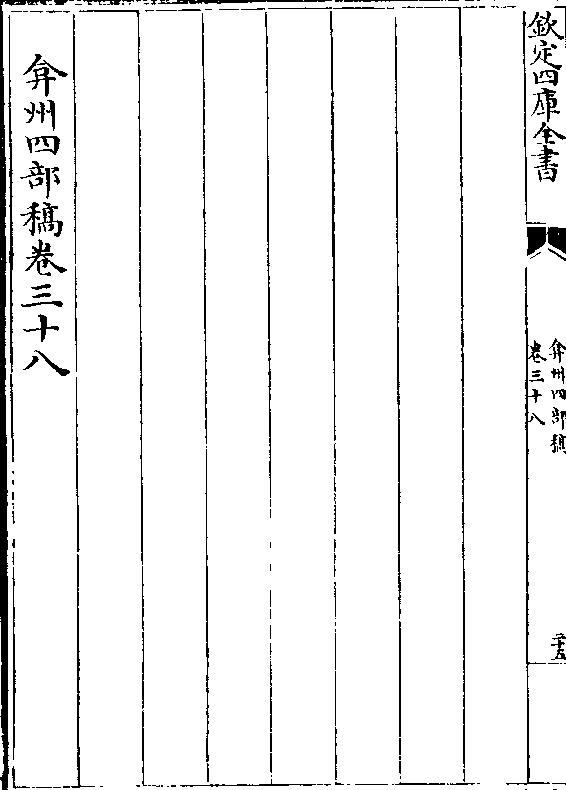 欽定四庫全書
弇州四部稿
卷三十八
二十五
弇州四部稿卷三十八